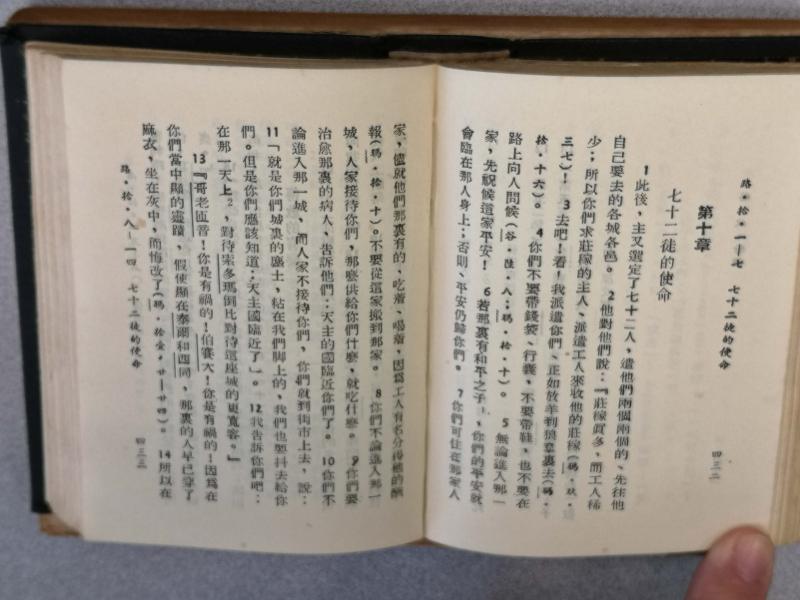 路·拾·1—七 七十二徒的使命 四三二
第十章
七十二徒的使命
1 此後，主又選定了七十二人，遣他們兩個兩個的、先往他
自己要去的各城各邑。 2 他對他們說：『莊稼眞多、而工人稀
少；所以你們求莊稼的主人、派遣工人來收他的莊稼(瑪·玖·
三七)！ 3 去吧！看！我派遣你們、正如放羊到狼羣裏去(瑪·
拾·十六)。 4 你們不要帶錢袋、行囊，不要帶鞋，也不要在
路上向人問候(谷·陸·八；瑪·拾·十)。 5 無論進入那一
家，先祝候這家平安！ 6 若那裏有和平之子1，你們的平安就
會臨在那人身上；否則、平安仍歸你們。 7 你們可住在那家人
家，儘就他們那裏有的、吃着、喝着，因爲工人有名分得他的酬
報(瑪·拾·十)。不要從這家搬到那家。 8 你們不論進入那一
城，人家接待你們，那麼供給你們什麼，就吃什麼。 9 你們要
治愈那裏的病人、告訴他們：天主的國臨近你們了。 10 你們不
論進入那一城，而人家不接待你們，你們就到街市上去，說：
11「就是你們城裏的塵土，粘在我們脚上的，我們也要抖去給你
們。但是你們應該知道：天主國臨近了」。 12 我告訴你們吧：
在那一天上2，對待索多瑪倒比對待這座城的更寬容。』
13『哥老匝音！你是有禍的！伯賽大！你是有禍的！因爲在
你們當中顯的靈蹟，假使顯在泰爾和西同，那裏的人早已穿了
麻衣，坐在灰中，而悔改了(瑪·拾壹·廿—廿四)。 14 所以在
路·拾·八—一四 七十二徒的使命 四三三